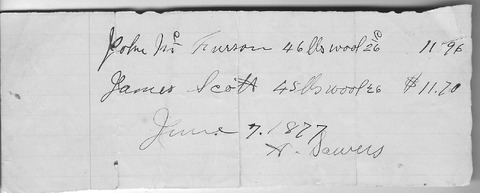 John Mc Furson 46 lbs wool 26 c 11.96
James Scott 45 lbs wool 26 $11.70
June 7. 1877
Sawers